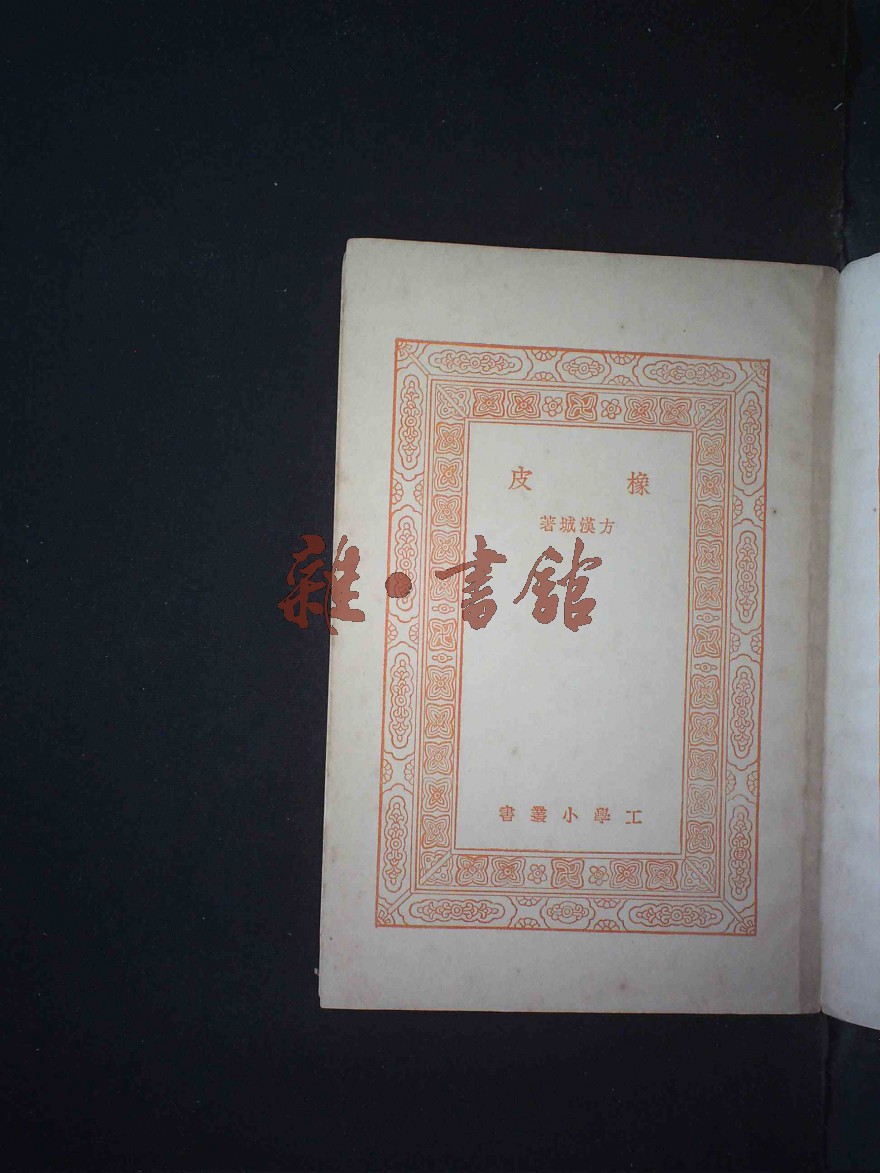 橡皮
方漢城著
雜·書館
工學小叢書